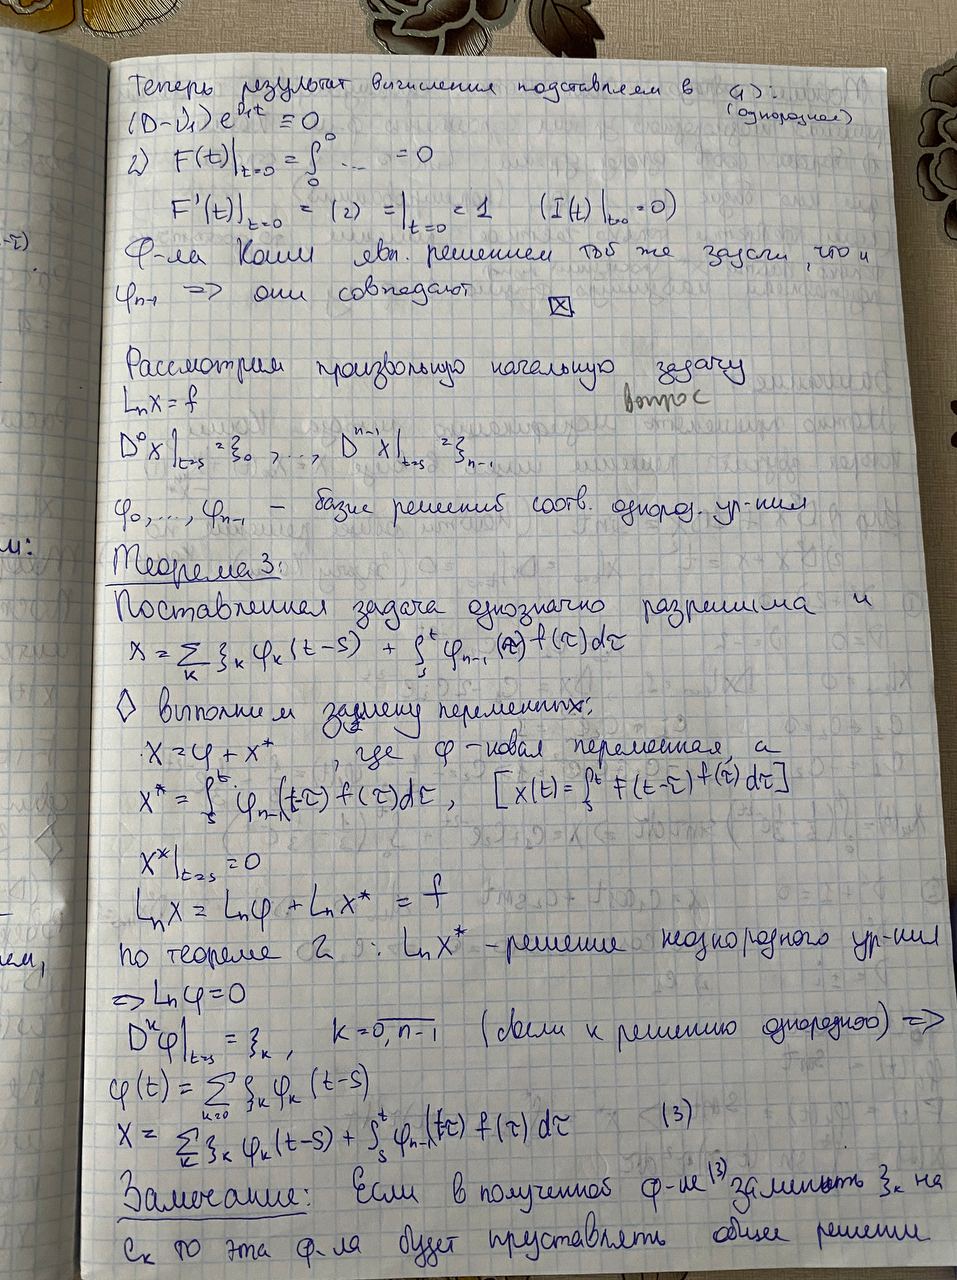 Теперь результат вычисления подставляем в (1):
(однородная)
(D-ν₁) e^{ν₁t} ≡ 0
2) F(t)|_{t=0} = ∫₀⁰ ... = 0
F'(t)|_{t=0} = (2) = |_{t=0} = 1 (I(t)|_{t=0} = 0)
Ф-ла Коши явл. решением той же задачи, что и
φ_{n-1} => они совпадают ☒
Рассмотрим произвольную начальную задачу
L_n x = f вопрос
D⁰x|_{t=s} = ξ₀, ..., D^{n-1}x|_{t=s} = ξ_{n-1}
φ₀, ..., φ_{n-1} - базис решений соотв. однород. ур-ния
Теорема 3:
Поставленная задача однозначно разрешима и
x = Σ_k ξ_k φ_k (t-s) + ∫_s^t φ_{n-1} (τ) f(τ) dτ
◊ Выполним замену переменных:
x = φ + x*, где φ - новая переменная, а
x* = ∫_s^t φ_{n-1}(t-τ) f(τ) dτ, [x(t) = ∫_s^t F(t-τ) f(τ) dτ]
x*|_{t=s} = 0
L_n x = L_n φ + L_n x* = f
по теореме 2 : L_n x* - решение неоднородного ур-ния
=> L_n φ = 0
D^k φ|_{t=s} = ξ_k, k = \overline{0, n-1} (свели к решению однородного) =>
φ(t) = Σ_{k=0} ξ_k φ_k (t-s)
x = Σ_k ξ_k φ_k (t-s) + ∫_s^t φ_{n-1}(t-τ) f(τ) dτ (3)
Замечание: Если в полученной ф-ле (3) заменить ξ_k на
C_k то эта ф-ла будет пруставлять общее решение